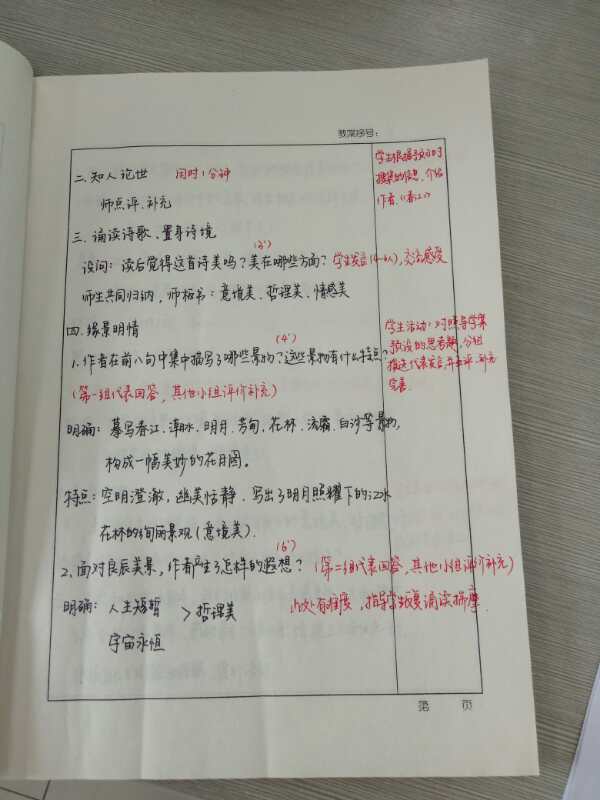 教案序号：
二、知人论世 用时1分钟
师点评、补充
学生根据预习时
搜集的信息，介绍
作者、《春江》
三、诵读诗歌、置身诗境
(3')
设问：读后觉得这首诗美吗？美在哪些方面？学生发言(4-6人)，交流感受
师生共同归纳，师板书：意境美、哲理美、情感美
四、缘景明情
(4')
1.作者在前八句中集中描写了哪些景物？这些景物有什么特点？
(第一组代表回答，其他小组评价补充)
学生活动：对照导学案
预设的思考题，分组
推选代表发言，并互评、补充
完善
明确：摹写春江、潮水、明月、芳甸、花林、流霜、白沙等景物，
构成一幅美妙的花月图。
特点：空明澄澈，幽美恬静．写出了明月照耀下的江水
花林的绚丽景观(意境美)．
(6')
2、面对良辰美景，作者产生了怎样的遐想？(第二组代表回答，其他小组评价补充)
明确：人生短暂 > 哲理美 此处有难度，指导学生反复诵读揣摩．
宇宙永恒
第 页